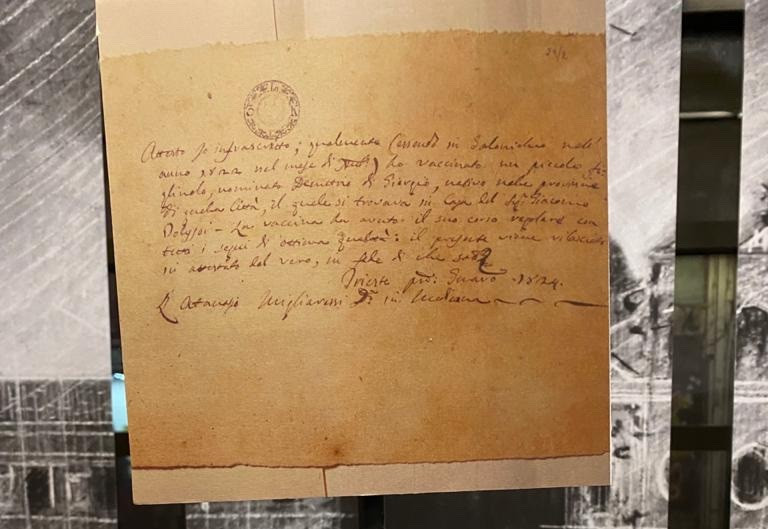 24/2
Attesto Io infrascritto, qualmente essendo in Salonichio nell'
anno 1822 nel mese di ho vaccinato un piccolo fi-
gliuolo, nominato Demetrio di Giorgio, nativo nelle provincie
di quella Città, il quale si trovava in Casa del Sigr Giacomo
La vaccina ha avuto il suo corso regolare con
tutti i segni di ottima qualità: il presente viene rilasciato
in attestato del vero, in fede di che
Trieste pmo 1824.
Atanasio Migliaressi Dr in Medicina